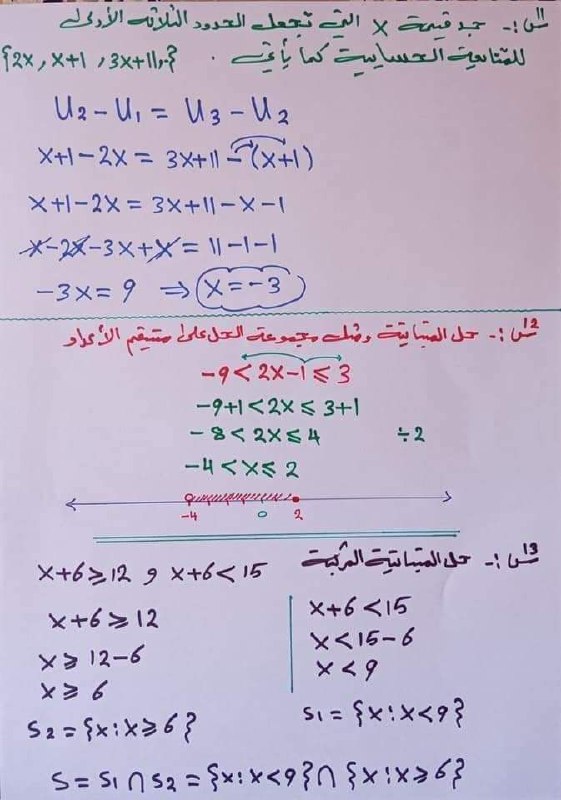 س11:- جد قيمة x التي تجعل الحدود الثلاثه الأولى
للمتتابعة الحسابية كما يأتي . {2x, x+1, 3x+11,..}
U2 - U1 = U3 - U2
x+1-2x = 3x+11-(x+1)
x+1-2x = 3x+11-x-1
x-2x-3x+x = 11-1-1
-3x = 9 ⇒ x = -3
س12:- حل المتباينة ومثل مجموعة الحل على مستقيم الأعداد
-9 < 2x-1 ≤ 3
-9+1 < 2x ≤ 3+1
-8 < 2x ≤ 4 ÷2
-4 < x ≤ 2
-4 0 2
س13:- حل المتباينة المركبة
x+6 ≥ 12 و x+6 < 15
x+6 < 15
x < 15-6
x < 9
S1 = {x : x < 9}
x+6 ≥ 12
x ≥ 12-6
x ≥ 6
S2 = {x : x ≥ 6}
S = S1 ∩ S2 = {x : x < 9} ∩ {x : x ≥ 6}